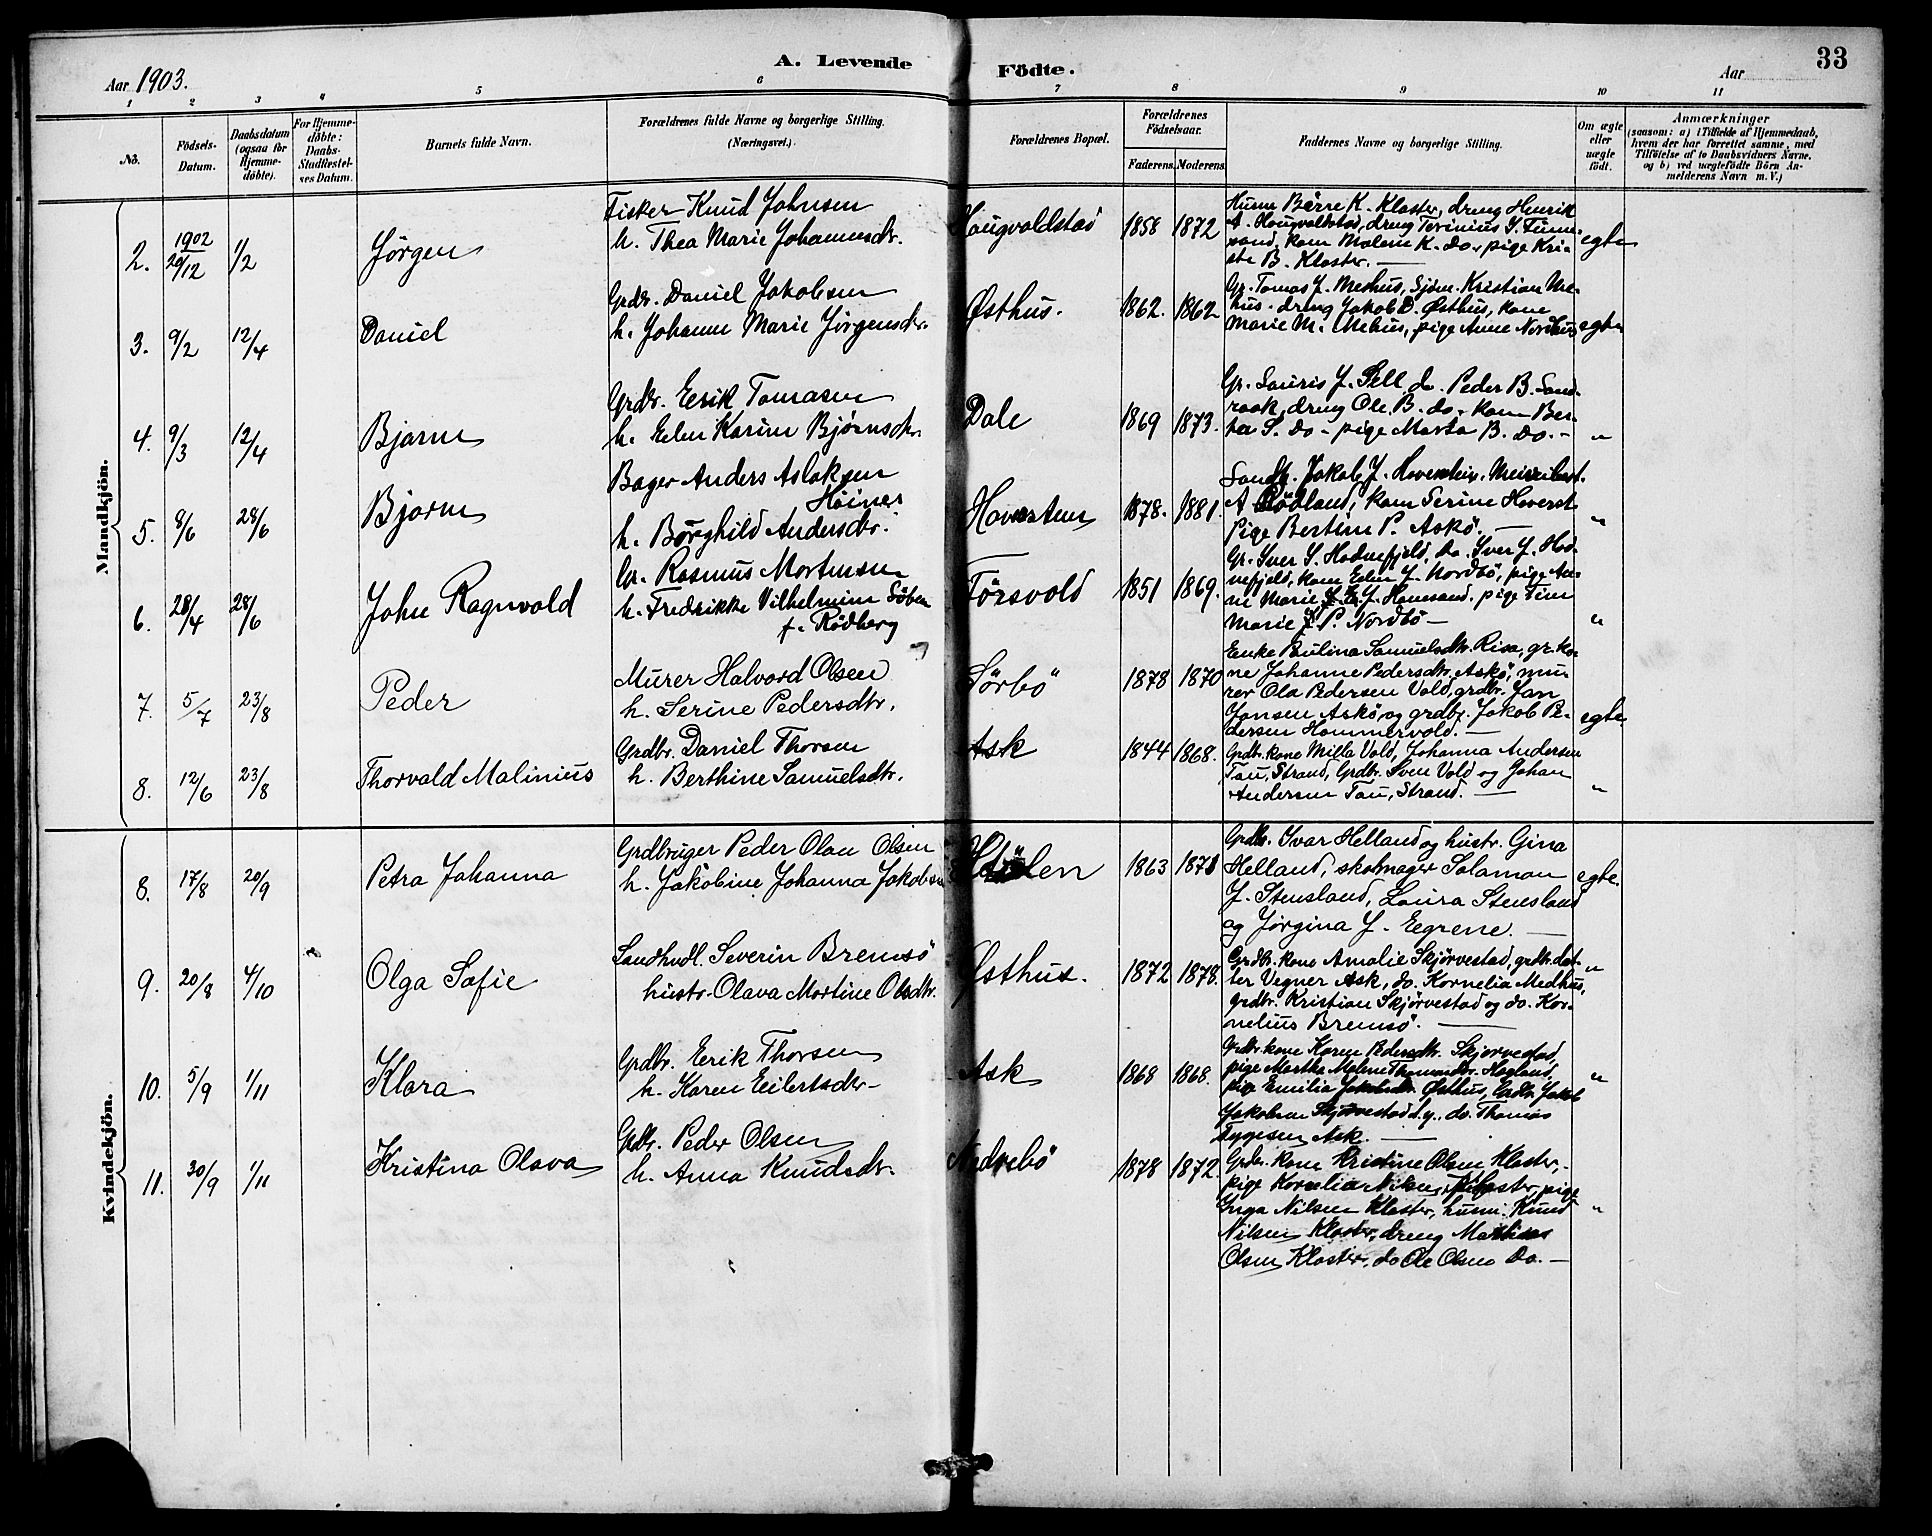 A. Levende Födte.
33
Aar 1903.
Aar
1 2 3 4 5 6 7 8 9 10 11
No.
Födsels-Datum.
Daabsdatum (ogsaa for Hjemme-döbte).
For Hjemme-döbte: Daabs-Stadfæstel-ses Datum.
Barnets fulde Navn.
Forældrenes fulde Navne og borgerlige Stilling. (Næringsvei.)
Forældrenes Bopæl.
Forældrenes Födselsaar.
Faderens.
Moderens.
Faddernes Navne og borgerlige Stilling.
Om ægte eller uægte födt.
Anmærkninger
(saasom: a) i Tilfælde af Hjemmedaab,
hvem der har forrettet samme, med
Tilföielse af to Daabsvidners Navne,
og b) ved uægtefödte Börn An-
melderens Navn m. V.)
Mandkjön.
2. 1902 29/12 1/2 Jørgen
Fisker Knud Johnsen
h. Thea Marie Johannesdr.
Haugvaldstad 1858 1872
Husm Børre K. Kloster, dreng Henrik
A. Haugvaldstad, dreng
kone Malene K. do, pige Kri-
ste B. Kloster. —
egte
3. 9/2 12/4 Daniel
Grdbr. Daniel Jakobsen
h. Johanne Marie Jørgensdr.
Østhus. 1862. 1862
Gr. Tomas J. Meshus, Sjøm. Kristian Me-
hus, dreng Jakob D. Østhus, kone
Marie M. Mehus, pige Anne Nordhus
egte
4. 9/3 12/4 Bjarne
Grdbr. Erik Tomasen
h. Elen Karine Bjørnsdr.
Dale 1869 1873.
Gr. Lauris J. do. Peder B. Sand-
raak, dreng Ole B. do, kone Ber-
ta S. do - pige Marta B. do. -
"
5. 8/6 28/6 Bjarne
Bager Anders Aslaksen
Höines
h. Borghild Andersdtr.
Haverstein 1878. 1881.
Jakob J. Haverstein,
A Rödland, kone Serine Haverst.
Pige Bertine P. Askö. —
"
6. 28/4 28/6 John Ragnvald
Gr. Rasmus Mortensen
h. Fredrikke Vilhelmine
f. Rödberg
Førsvold 1851 1869.
Gr. Iver S. Hodnefjeld, Do. Iver J. Hod-
nefjeld, kone Elen J. Nordbö, pige An-
ne Marie J. Hanasand. pige
Marie J. P. Nordbö —
"
7. 5/7 23/8 Peder
Murer Halvord Olsen
h. Serine Pedersdtr.
Sörbö 1878 1870
Enke Paulina Samuelsdtr. Risa, gr.ko-
ne Johanne Pedersdtr. Askö, mu-
rer Ola Pedersen Vold, grdbr. Jan
Jansen Askö og grdbr. Jakob Pe-
dersen Hommervold. —
egte
8. 12/6 23/8 Thorvald Malinius
Grdbr. Daniel Thorsen
h. Berthine Samuelsdtr.
Ask 1844 1868.
Grdbr. kone Milla Vold, Johanna Andersen
Tau, Strand, Grdbr. Sven Vold og Johan
Andersen Tau, Strand. —
"
Kvindekjön.
8. 17/8 20/9 Petra Johanna
Grdbruger Peder Olau Olsen
h. Jakobine Johanna Jakobsen
1863 1871
Grdbr. Ivar Helland og hustr. Gina
Helland, skomager Salamon
J. Stensland, Laura Stensland
og Jørgina J. Egrene. —
egte.
9. 20/8 4/10 Olga Sofie
Landhndl. Severin Bremsö
hustr. Olava Martine Olsdtr.
Østhus. 1872 1878.
Grdbr. kone Amalie Skjørvestad, grdbr. dat-
ter Vegner Ask, do. Kornelia Medhus,
grdbr. Kristian Skjørvestad og do. Kor-
nelius Bremsö. —
"
10. 5/9 1/11 Klara
Grdbr. Eerik Thorsen
h. Karen Eilertsdr.
Ask 1868 1868.
Grdbr. kone Karen Pedersdtr. Skjørvestad,
pige Martha Malene Hagland,
pige Emilia Jakobsdtr. Østhus, Grdbr. Jakob
Jakobsen Skjørvestad d.y., do. Thomas
Tygesen Ask. —
"
11. 30/9 1/11 Kristina Olava
Grdbr. Peder Olsen
h. Anna Knudsdr.
Nedrebö 1878 1872
Grdbr. kone Kristine Olsen Kloster,
pige Kornelia Nilsen Kloster, pige
Inga Nilsen Kloster, husm. Knud
Nilsen Kloster, dreng
Olsen Kloster, do Ole Olsen Do. —
"